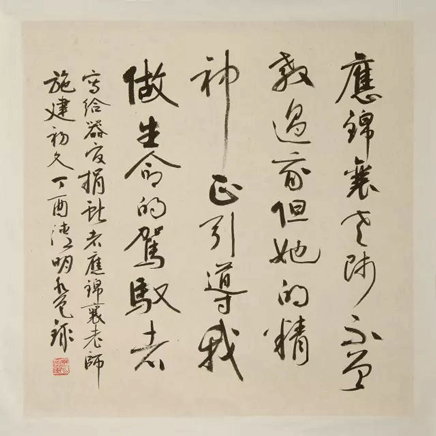 應錦襄老師不曾
教過但她的精
神正引導我
做生命的駕馭者
寫給器官捐獻者應錦襄老師
施建初丁酉清明錄